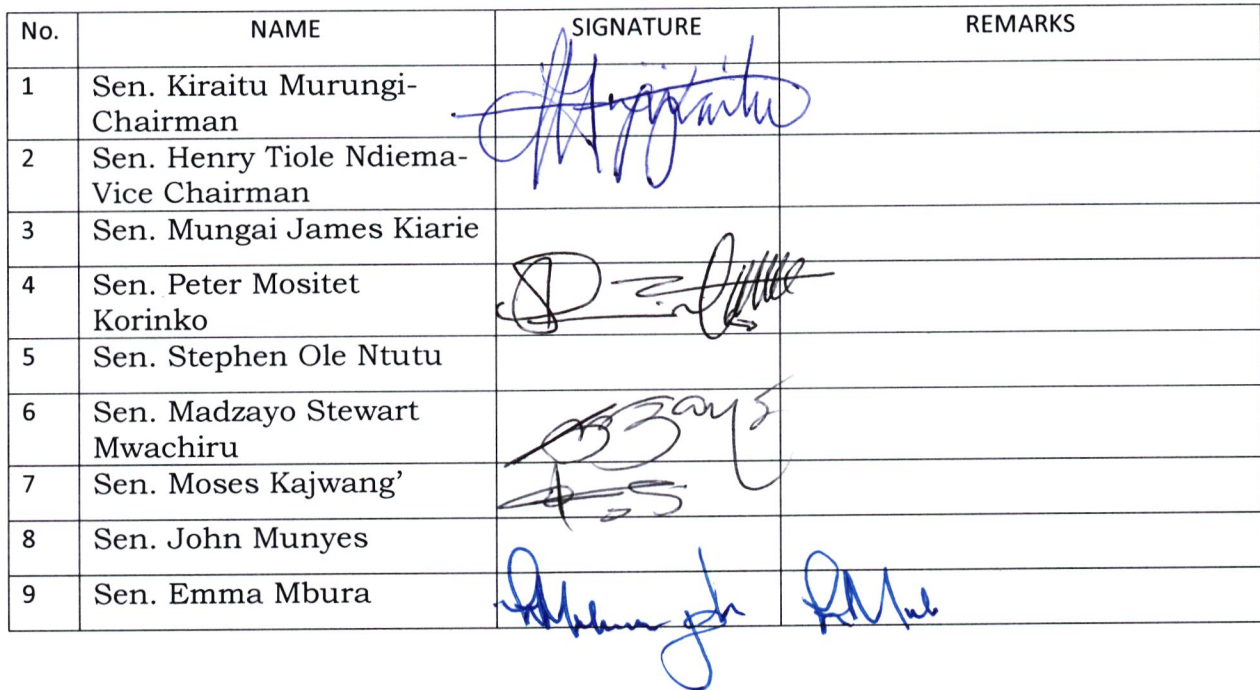 No. NAME SIGNATURE REMARKS
1 Sen. Kiraitu Murungi-
Chairman
2 Sen. Henry Tiole Ndiema-
Vice Chairman
3 Sen. Mungai James Kiarie
4 Sen. Peter Mositet
Korinko
5 Sen. Stephen Ole Ntutu
6 Sen. Madzayo Stewart
Mwachiru
7 Sen. Moses Kajwang’
8 Sen. John Munyes
9 Sen. Emma Mbura